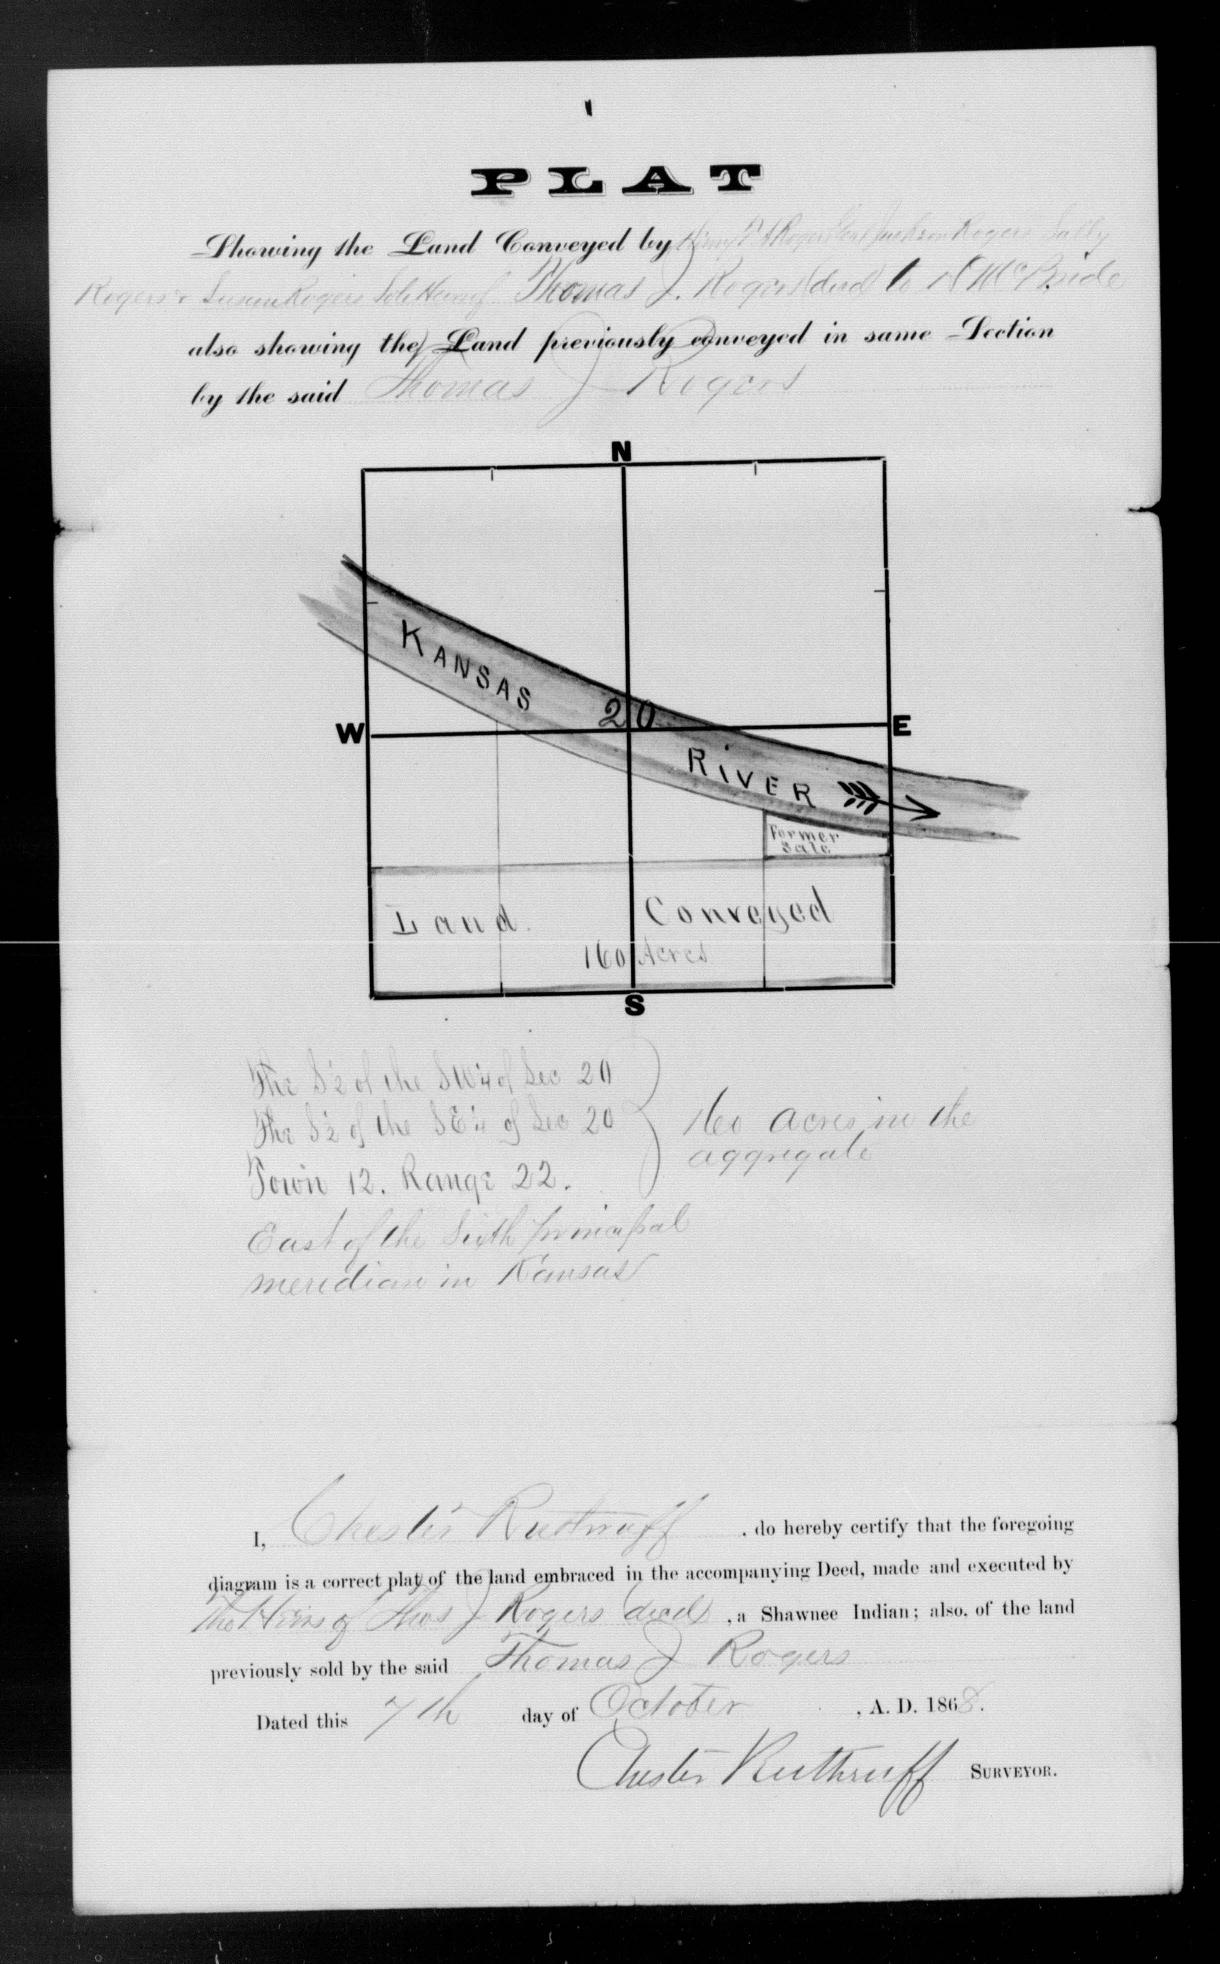 PLAT
Showing the Land Conveyed by Jackson Rogers Sally
Rogers & Susan Rogers Sole Heirs of Thomas J. Rogers (decd) to McBride
also showing the Land previously conveyed in same Section
by the said Thomas J Rogers
N
KANSAS
20
W
E
RIVER
Former
Sale
Land Conveyed
160 Acres
S
The S½ of the SW¼ of Sec 20
The S½ of the SE¼ of Sec 20
160 acres in the
aggregate
Town 12. Range 22.
East of the Sixth principal
meridian in Kansas
I, Chester Ruthruff, do hereby certify that the foregoing
diagram is a correct plat of the land embraced in the accompanying Deed, made and executed by
the Heirs of Thos J Rogers (decd), a Shawnee Indian; also, of the land
previously sold by the said Thomas J Rogers
Dated this 7th day of October, A. D. 1868.
Chester Ruthruff SURVEYOR.